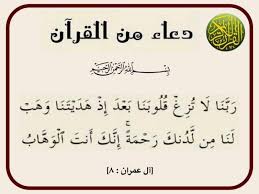 دعاء من القرآن
بسم الله الرحمن الرحيم
رَبَّنَا لَا تُزِغْ قُلُوبَنَا بَعْدَ إِذْ هَدَيْتَنَا وَهَبْ
لَنَا مِن لَّدُنكَ رَحْمَةً ۚ إِنَّكَ أَنتَ ٱلْوَهَّابُ
[آل عمران : ٨]